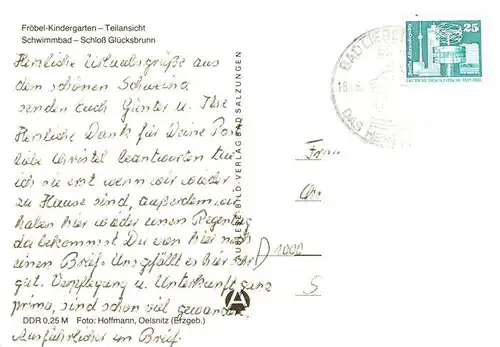 Fröbel-Kindergarten – Teilansicht
Schwimmbad – Schloß Glücksbrunn
Herzliche Urlaubsgrüße aus
dem schönen Schweina
senden Euch Günter u. Ilse
Herzliche Dank für Deine Post
liebe Christel beantworten tue
ich sie erst wenn wir wieder
zu Hause sind, außerdem wir
haben hier wieder einen Regentag
da bekommst Du von hier noch
einen Brief. Uns gefällt es hier sehr
gut. Verpflegung u. Unterkunft ganz
prima, sind schon viel gewandert
Ausführlicher im Brief.
DDR 0,25 M Foto: Hoffmann, Oelsnitz (Erzgeb.)
BILD-VERLAG BAD SALZUNGEN
A
BAD LIEBEN
DAS HER
25
DEUTSCHE DEMOKRATISCHE REPUBLIK
D 1000
S